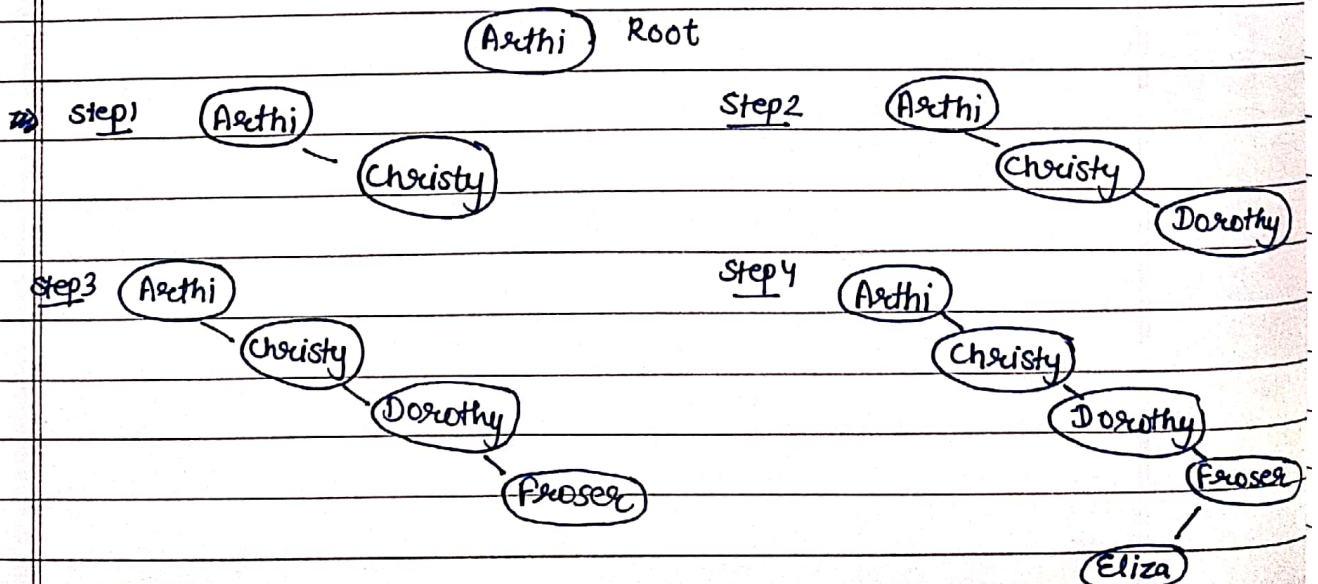 Arthi Root
Step1 Arthi
Christy
Step2 Arthi
Christy
Dorothy
Step3 Arthi
Christy
Dorothy
Froser
Step4 Arthi
Christy
Dorothy
Froser
Eliza